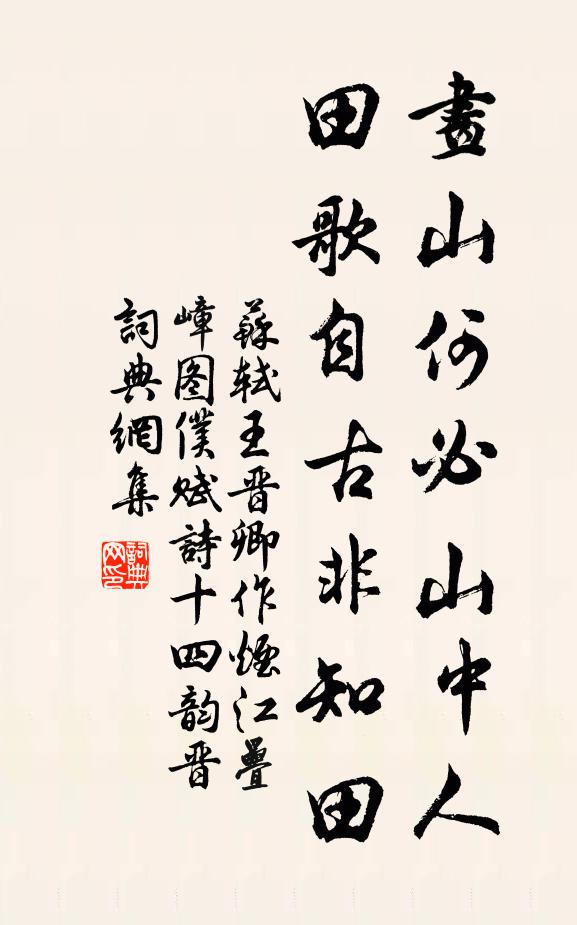 畫山何必山中人
田歌自古非知田
蘇軾王晋卿作煙江疊
嶂图僕赋詩十四韵晋
詞典網集
詞典
网印